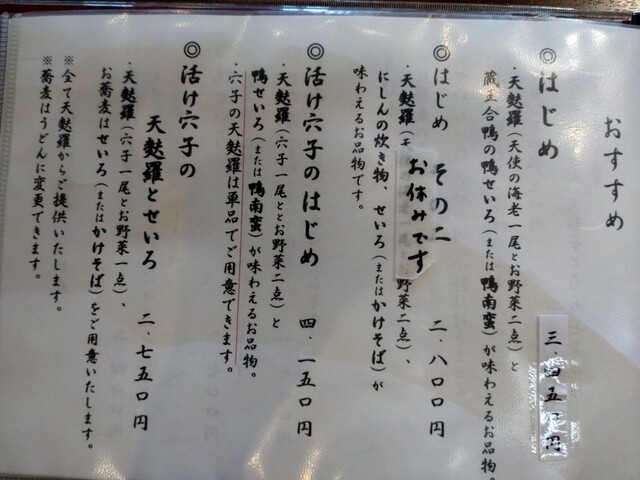 おすすめ
◎はじめ 三・四五〇円
・天麩羅（天使の海老一尾とお野菜二点）と
蔵王合鴨の鴨せいろ（または鴨南蛮）が味わえるお品物。
◎はじめ その二 二・八〇〇円
お休みです
・天麩羅（天 野菜二点）、
にしんの炊き物、せいろ（またはかけそば）が
味わえるお品物です。
◎活け穴子のはじめ 四・一五〇円
・天麩羅（穴子一尾ととお野菜二点）と
鴨せいろ（または鴨南蛮）が味わえるお品物。
・穴子の天麩羅は単品でご用意できます。
◎活け穴子の
天麩羅とせいろ 二・七五〇円
・天麩羅（穴子一尾とお野菜一点）、
お蕎麦はせいろ（またはかけそば）をご用意いたします。
※全て天麩羅からご提供いたします。
※蕎麦はうどんに変更できます。